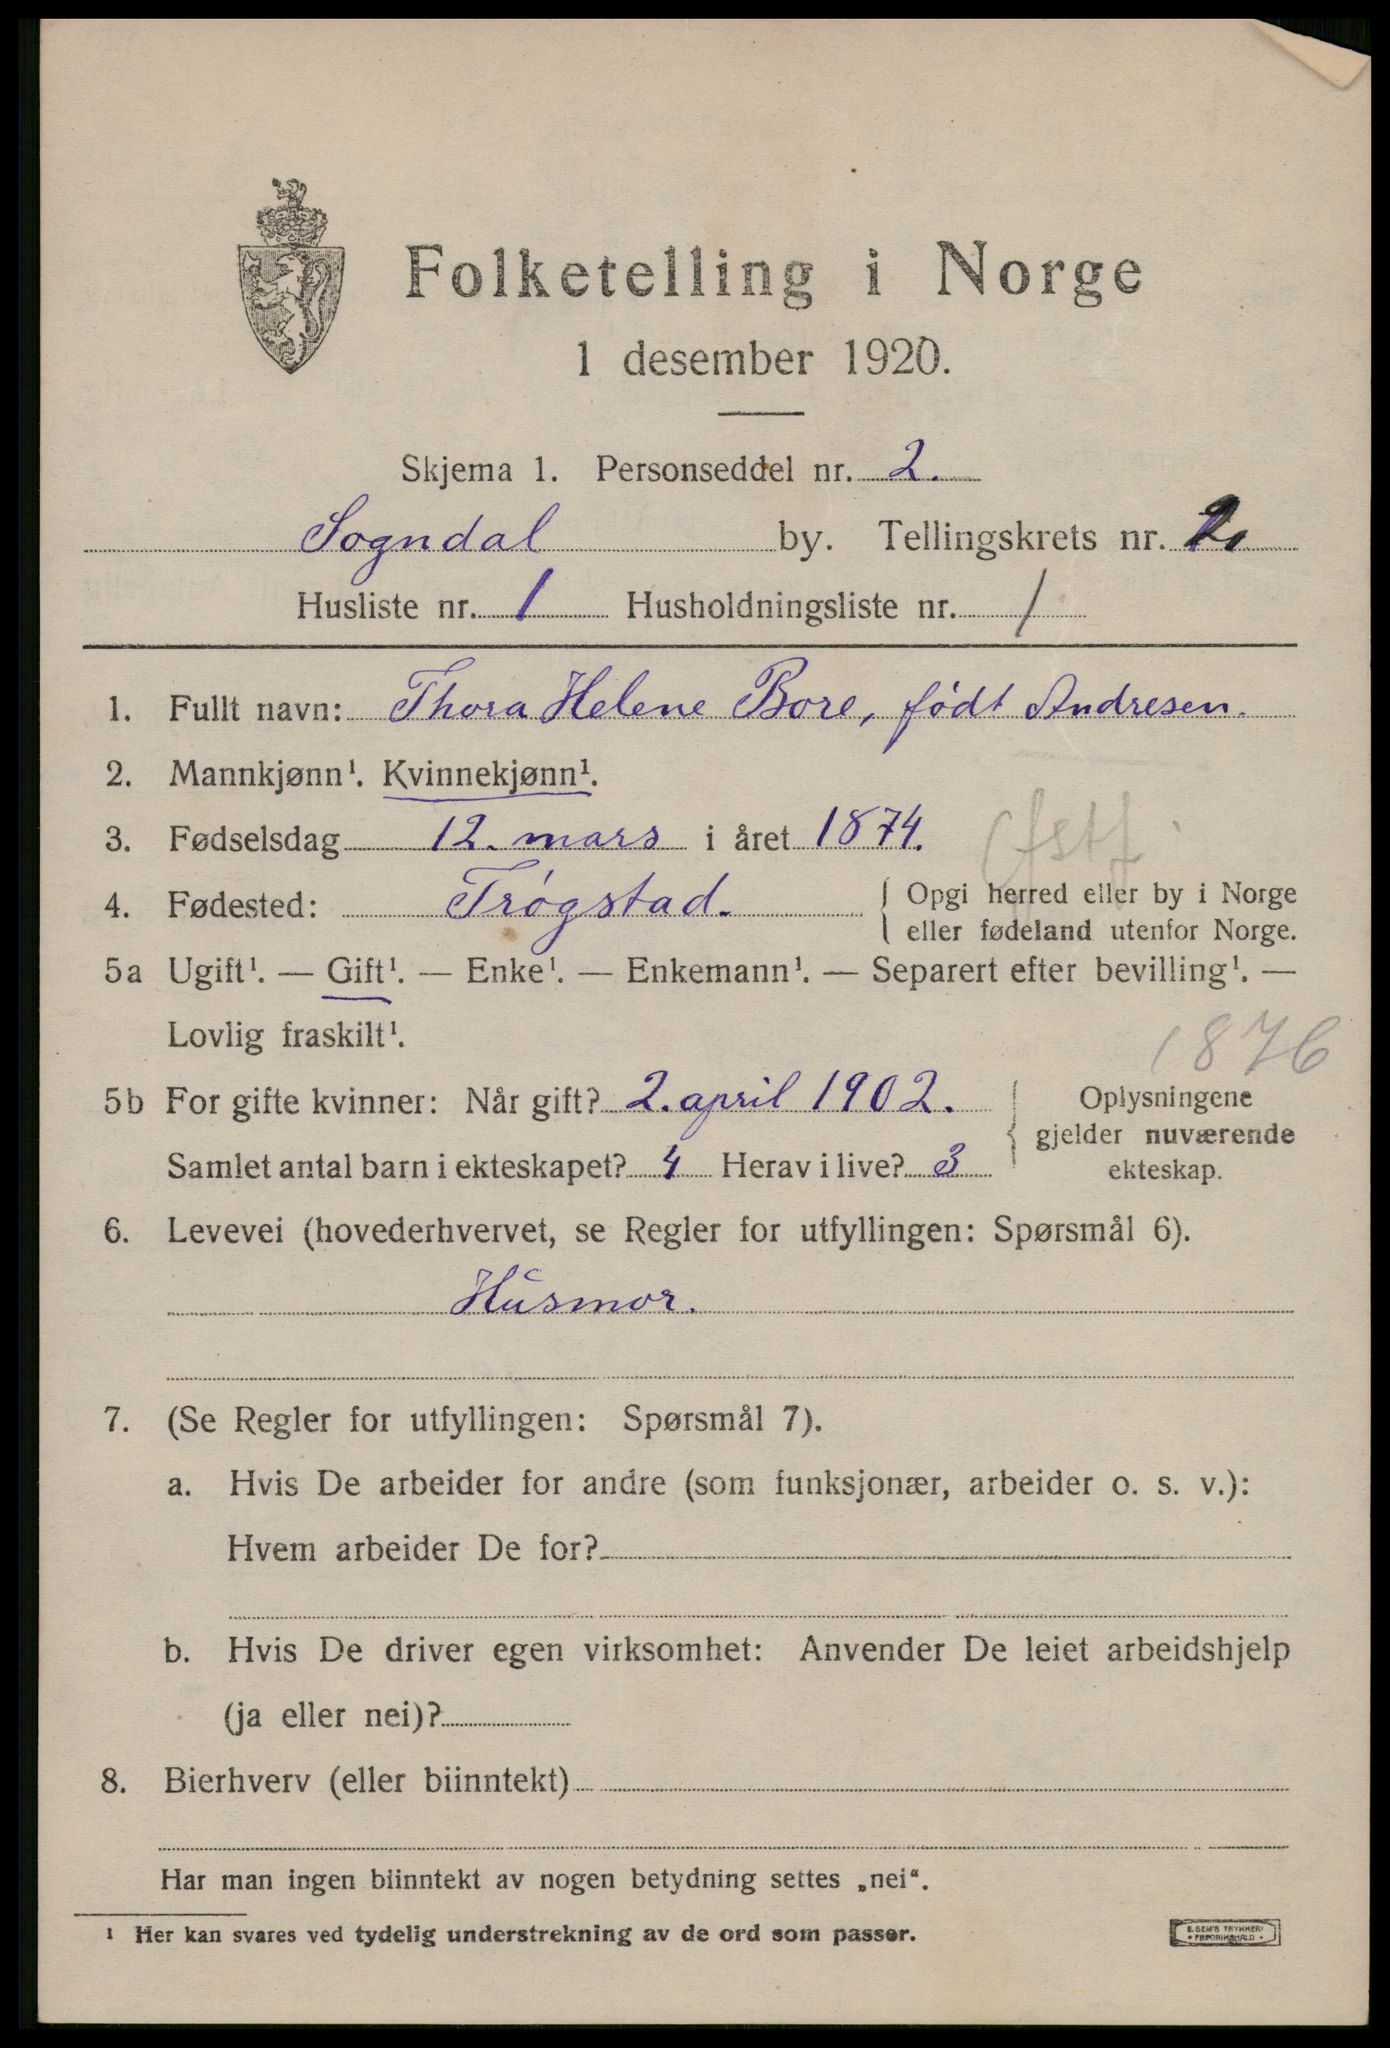 Folketelling i Norge
1 desember 1920.
Skjema 1. Personseddel nr. 2.
Sogndal by. Tellingskrets nr. 2.
Husliste nr. 1 Husholdningsliste nr. 1
1. Fullt navn: Thora Helene Bore, født Andresen.
2. Mannkjønn¹. Kvinnekjønn¹.
3. Fødselsdag 12. mars i året 1874.
4. Fødested: Trøgstad. { Opgi herred eller by i Norge
eller fødeland utenfor Norge.
5a Ugift¹. — Gift¹. — Enke¹. — Enkemann¹. — Separert efter bevilling¹. —
Lovlig fraskilt¹.
1876
5b For gifte kvinner: Når gift? 2. april 1902. { Oplysningene
gjelder nuværende
Samlet antal barn i ekteskapet? 4 Herav i live? 3 ekteskap.
6. Levevei (hovederhvervet, se Regler for utfyllingen: Spørsmål 6).
Husmor.
7. (Se Regler for utfyllingen: Spørsmål 7).
a. Hvis De arbeider for andre (som funksjonær, arbeider o. s. v.):
Hvem arbeider De for?
b. Hvis De driver egen virksomhet: Anvender De leiet arbeidshjelp
(ja eller nei)?
8. Bierhverv (eller biinntekt)
Har man ingen biinntekt av nogen betydning settes „nei“.
¹ Her kan svares ved tydelig understrekning av de ord som passer.
E. SEM'S TRYKKERI
• FREDRIKSHALD •